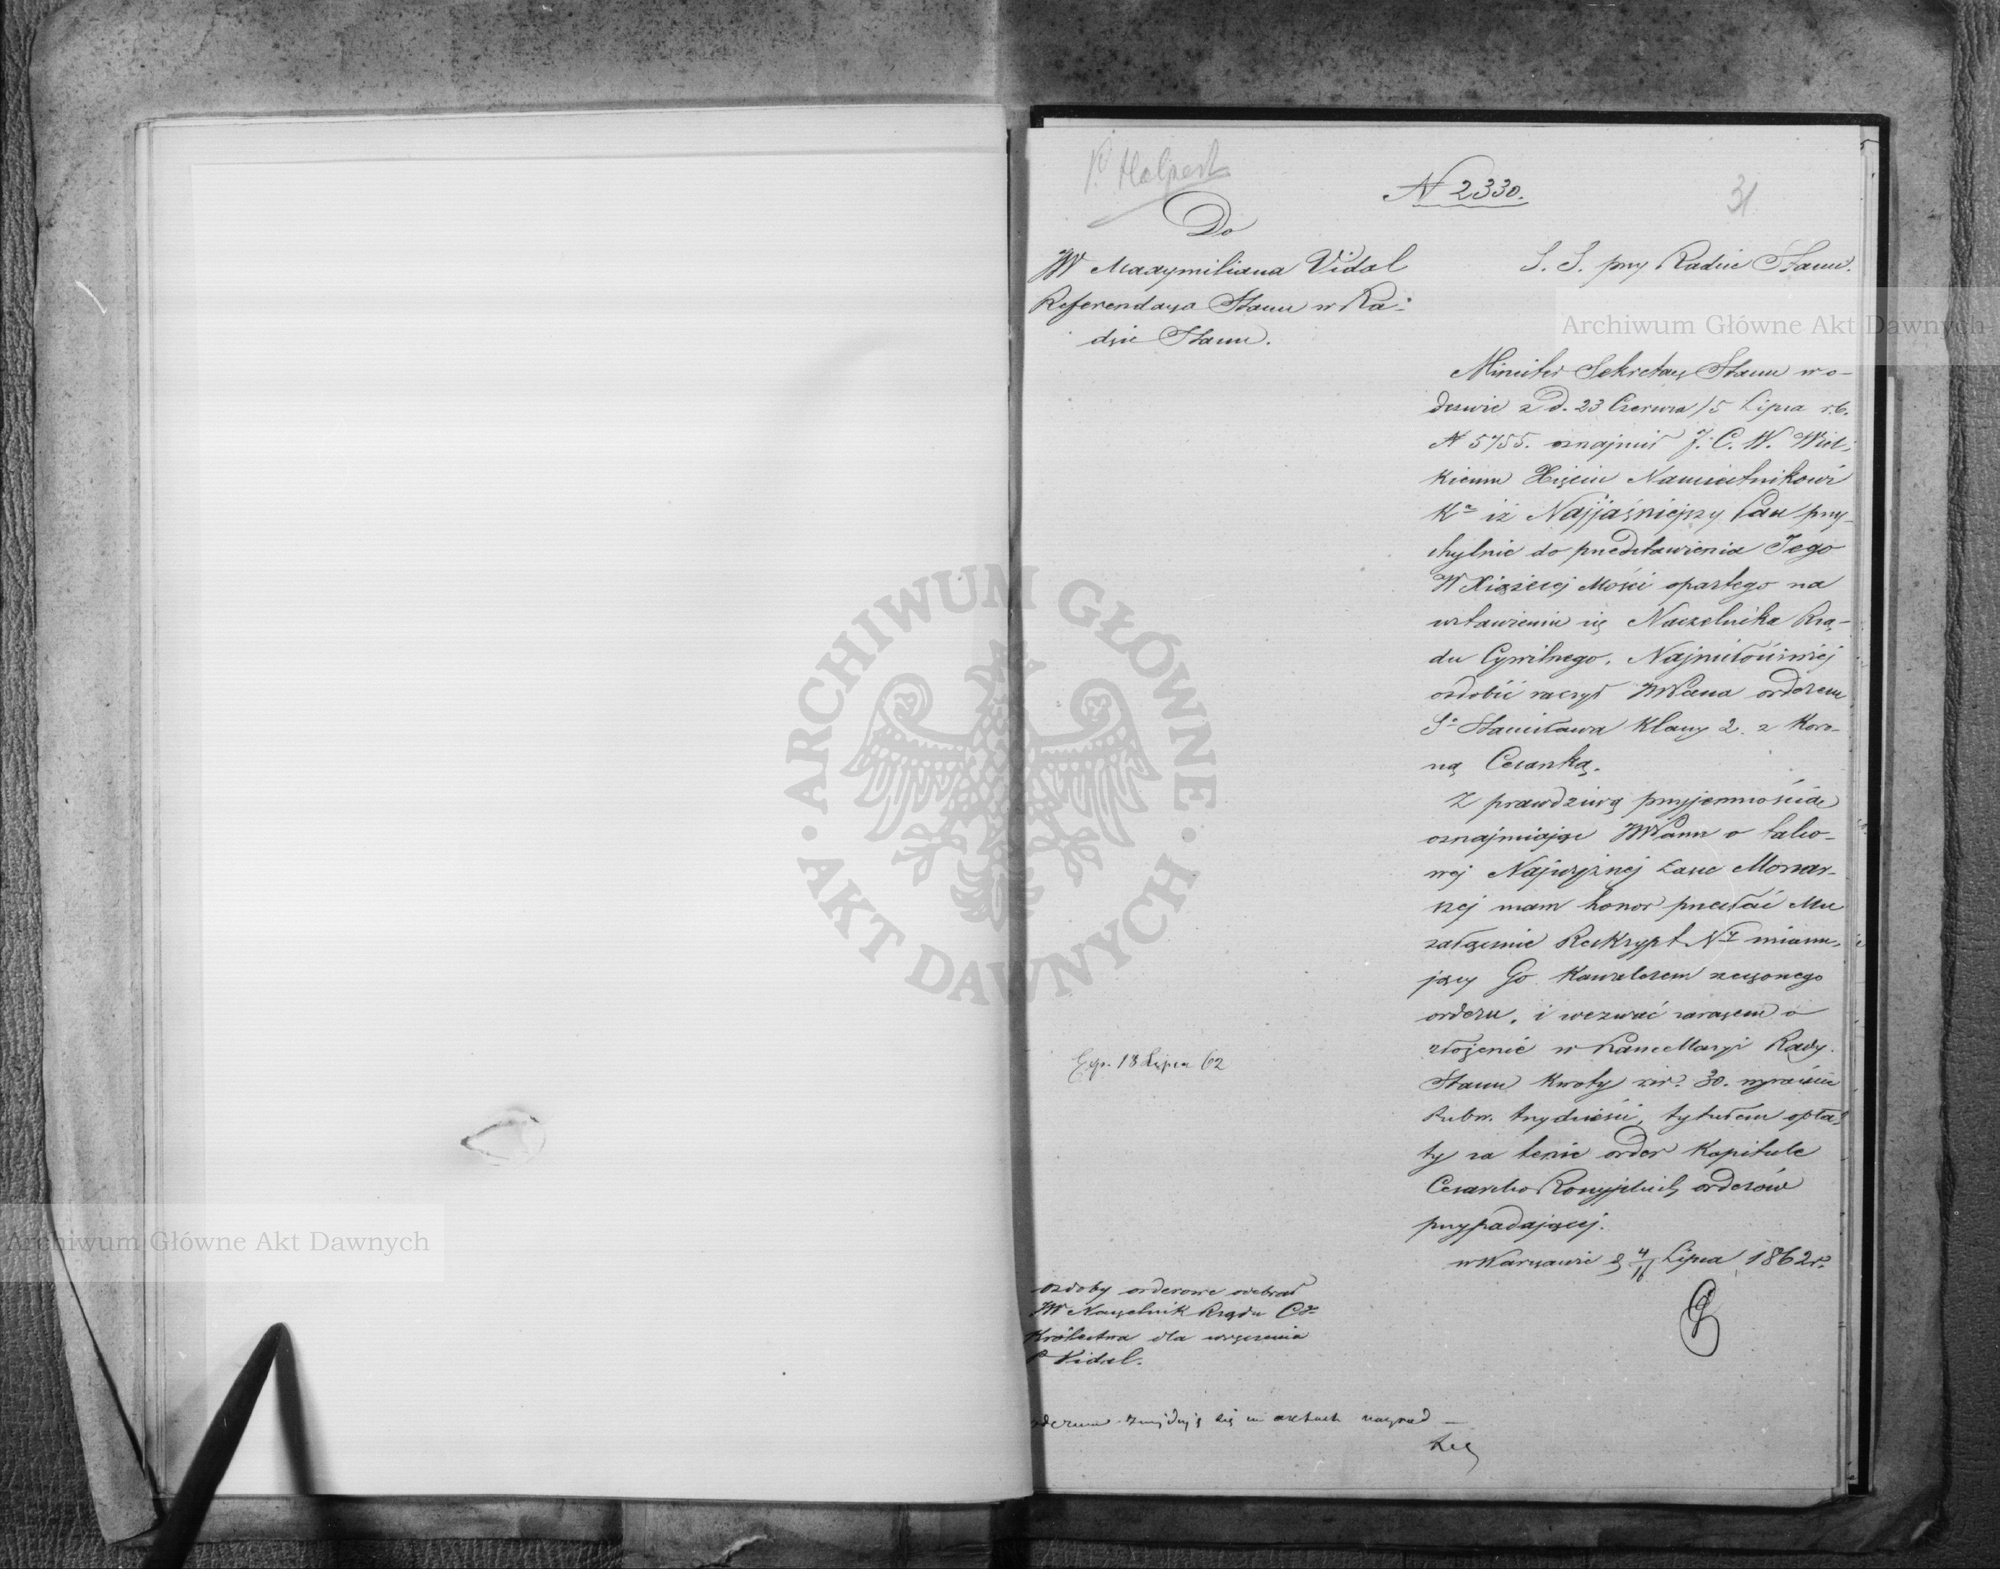 P. Halpert
N 2330.
31
Do
JW Maxymiliana Vidal
Referendarza Stanu w Ra-
dzie Stanu.
S. S. przy Radzie Stanu.
Minister Sekretarz Stanu w o-
dezwie z d. 23 Czerwca/5 Lipca r.b.
N 5755. oznajmił J. C. W. Wiel-
kiemu Xięciu Namiestnikowi
Kr iż Najjaśniejszy Pan przy-
chylnie do przedstawienia Jego
W Xiążęcej Mości opartego na
wstawieniu się Naczelnika Rzą-
du Cywilnego. Najmiłościwiej
ozdobić raczył JWPana orderem
Sgo Stanisława Klassy 2. z Koro-
ną Cesarską.
Z prawdziwą przyjemnością
oznajmiając JWPanu o tako-
wej Najwyższej Łasce Monar-
szej mam honor przesłać Mu
załącznie Reskrypt Ny mianu-
jący Go Kawalerem rzeczonego
orderu, i wezwać zarazem o
złożenie w Kancellaryi Rady
Stanu kwoty rsr. 30. wyraźnie
rubsr. trzydzieści, tytułem opła-
ty za tenże order Kapitule
Cesarsko Rossyjskich orderów
przypadającej.
w Warszawie d 4/16 Lipca 1862 r.
Exp. 18 Lipca 62
Ozdoby orderowe odebrał
JW Naczelnik Rządu Cgo
Królestwa dla wręczenia
P Vidal.
znajdują się w aktach nagród